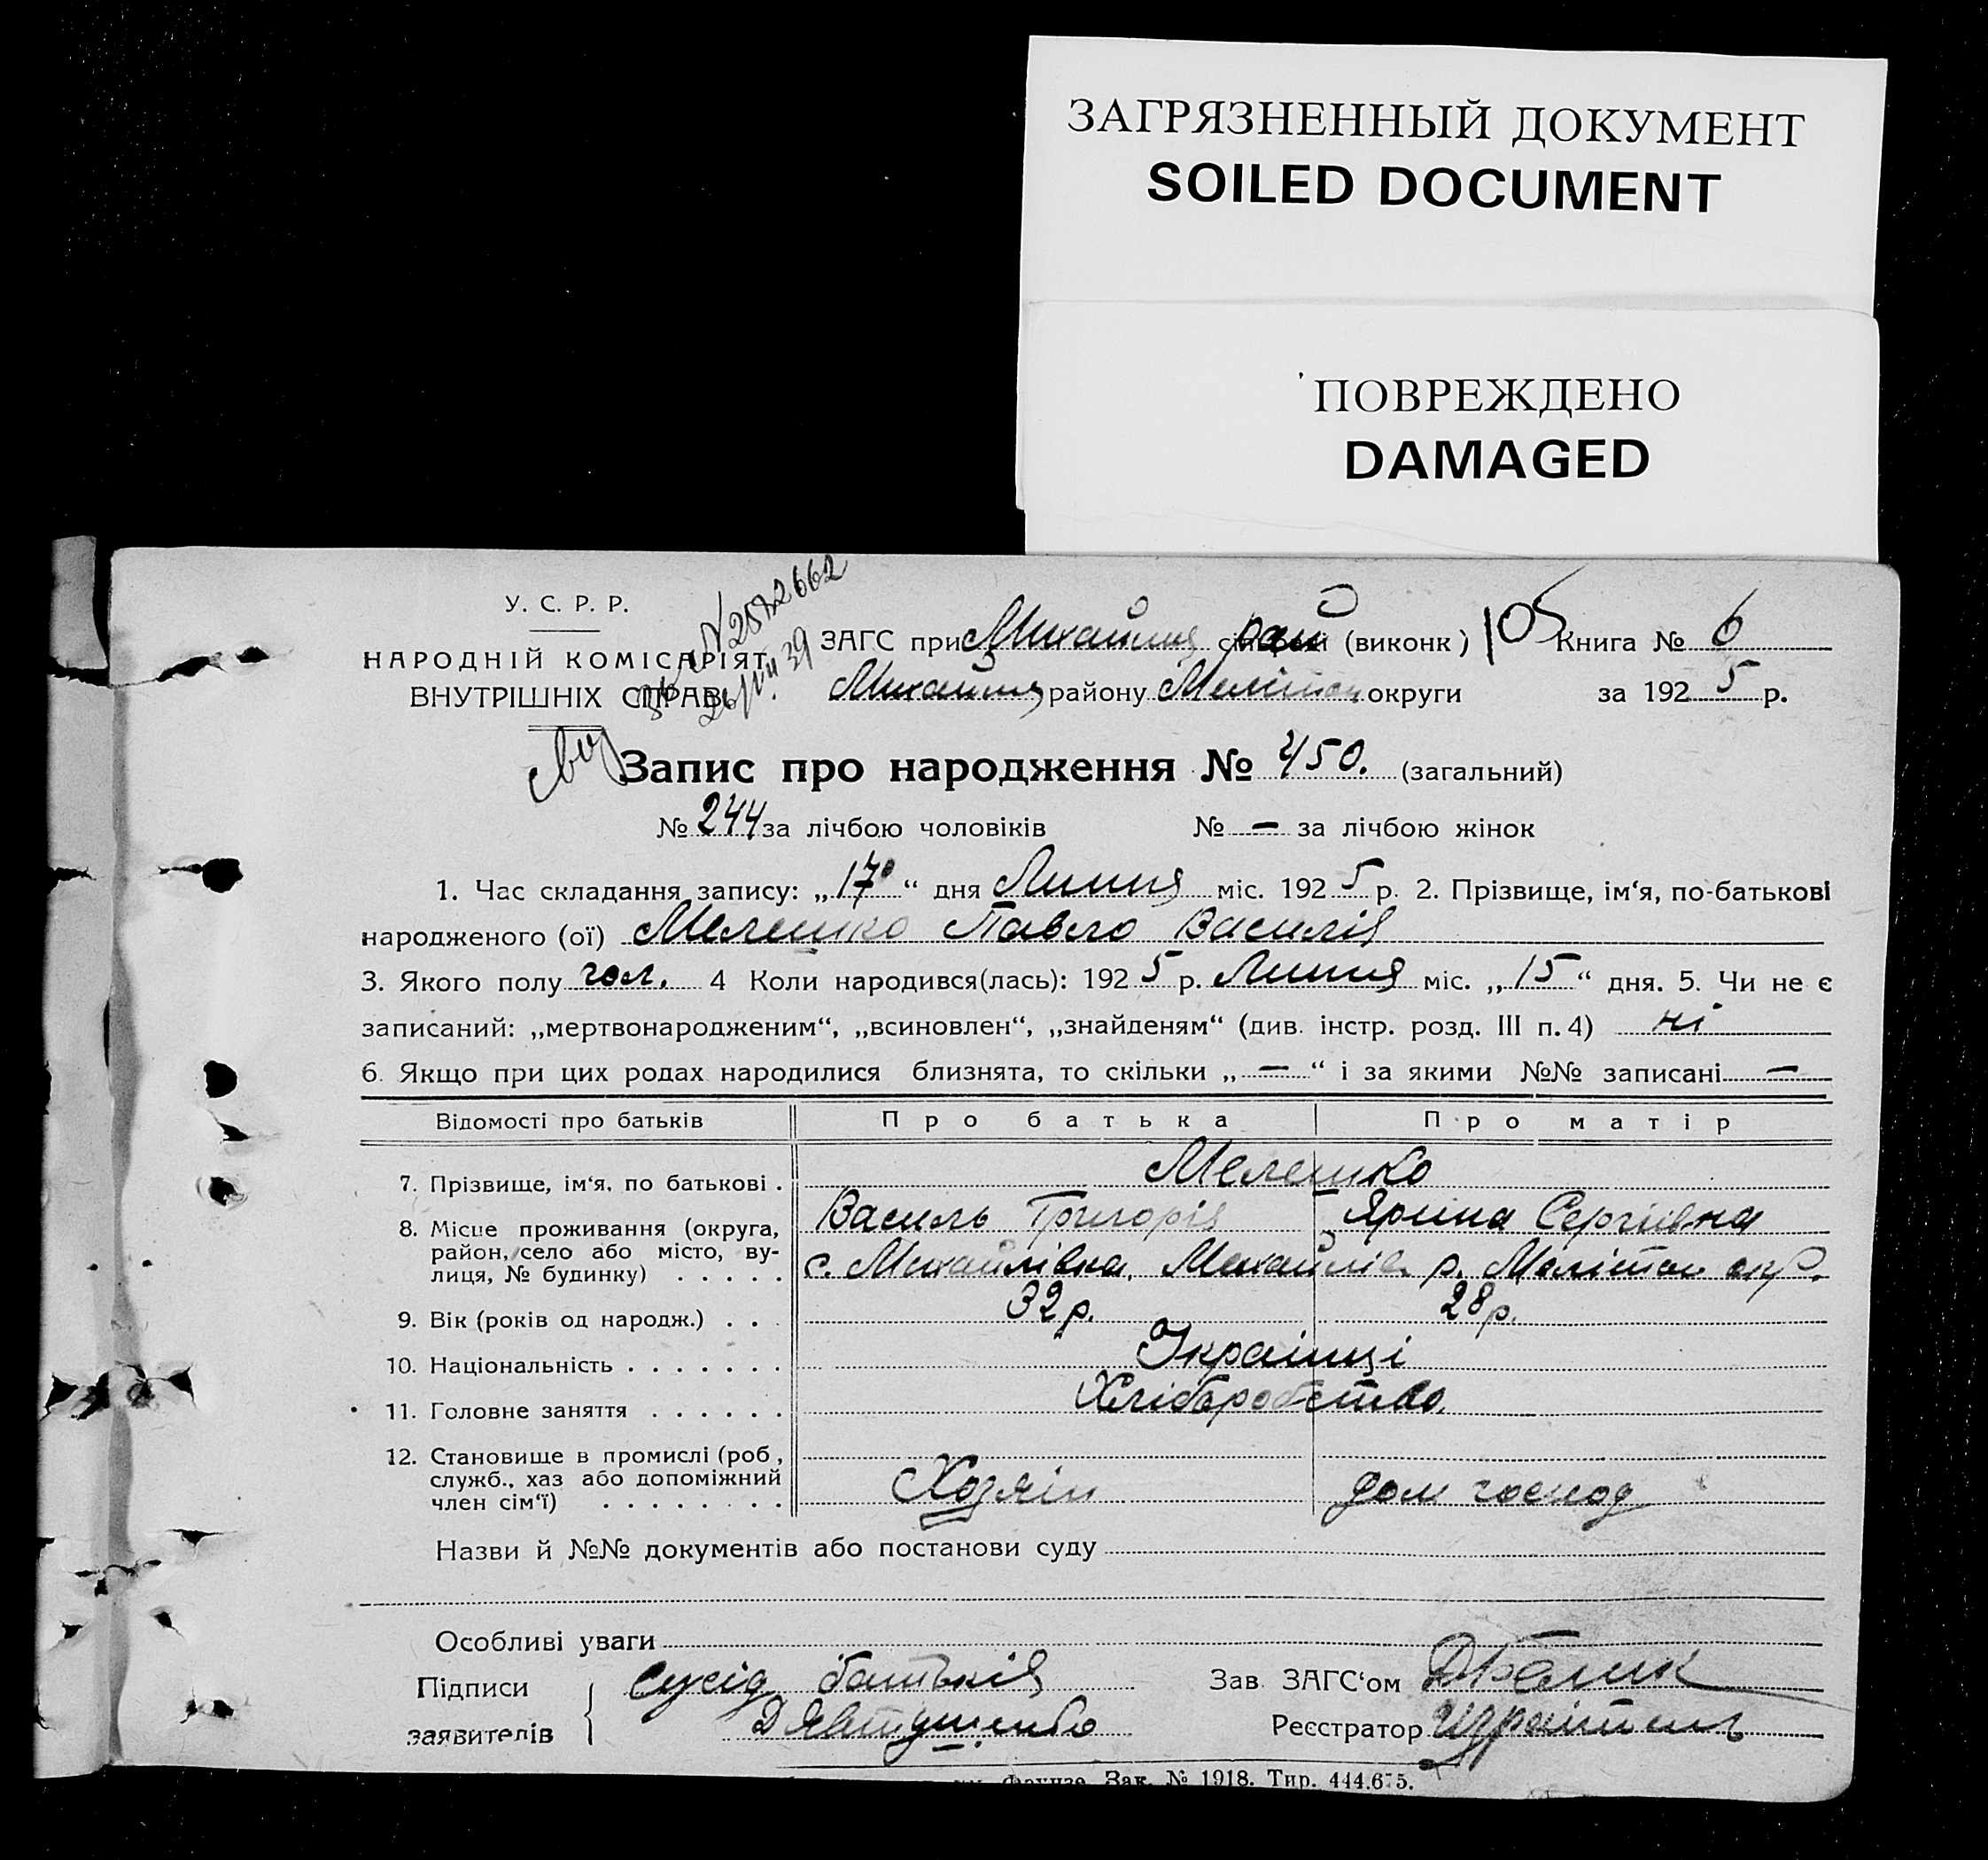 ЗАГРЯЗНЕННЫЙ ДОКУМЕНТ
SOILED DOCUMENT
ПОВРЕЖДЕНО
DAMAGED
У. С. Р. Р.
НАРОДНІЙ КОМІСАРІЯТ
ВНУТРІШНІХ СПРАВ
ЗАГС при Михайлів рай (виконк) 105 Книга № 6
Михайлів району Мелітоп округи за 1925 р.
Запис про народження № 450. (загальний)
№ 244 за лічбою чоловіків № — за лічбою жінок
1. Час складання запису: „17“ дня Липня міс. 1925 р. 2. Прізвище, ім‘я, по-батькові
народженого (ої) Мелешко Павло Василів
3. Якого полу чол. 4 Коли народився(лась): 1925 р. Липня міс. „15“ дня. 5. Чи не є
записаний: „мертвонародженим“, „всиновлен“, „знайденям“ (див. інстр. розд. III п. 4) ні
6. Якщо при цих родах народилися близнята, то скільки „—“ і за якими №№ записані —
Відомості про батьків Про батька Про матір
7. Прізвище, ім‘я, по батькові . Мелешко
Василь Григорів Ярина Сергіївна
8. Місце проживання (округа, район, село або місто, ву-
лиця, № будинку) . . . . . с. Михайлівка, Михайлів р. Мелітоп окр.
9. Вік (років од народж.) . . . 32 р. 28 р.
10. Національність . . . . . . . Українці
11. Головне заняття . . . . . . Хліборобство.
12. Становище в промислі (роб,
служб., хаз або допоміжний
член сім‘ї) . . . . . . . . Хозяїн дом господ
Назви й №№ документів або постанови суду
Особливі уваги
Підписи сусід батьків Зав. ЗАГС‘ом
заявителів Д Явтушенко Реєстратор
Зак. № 1918. Тир. 444.675.